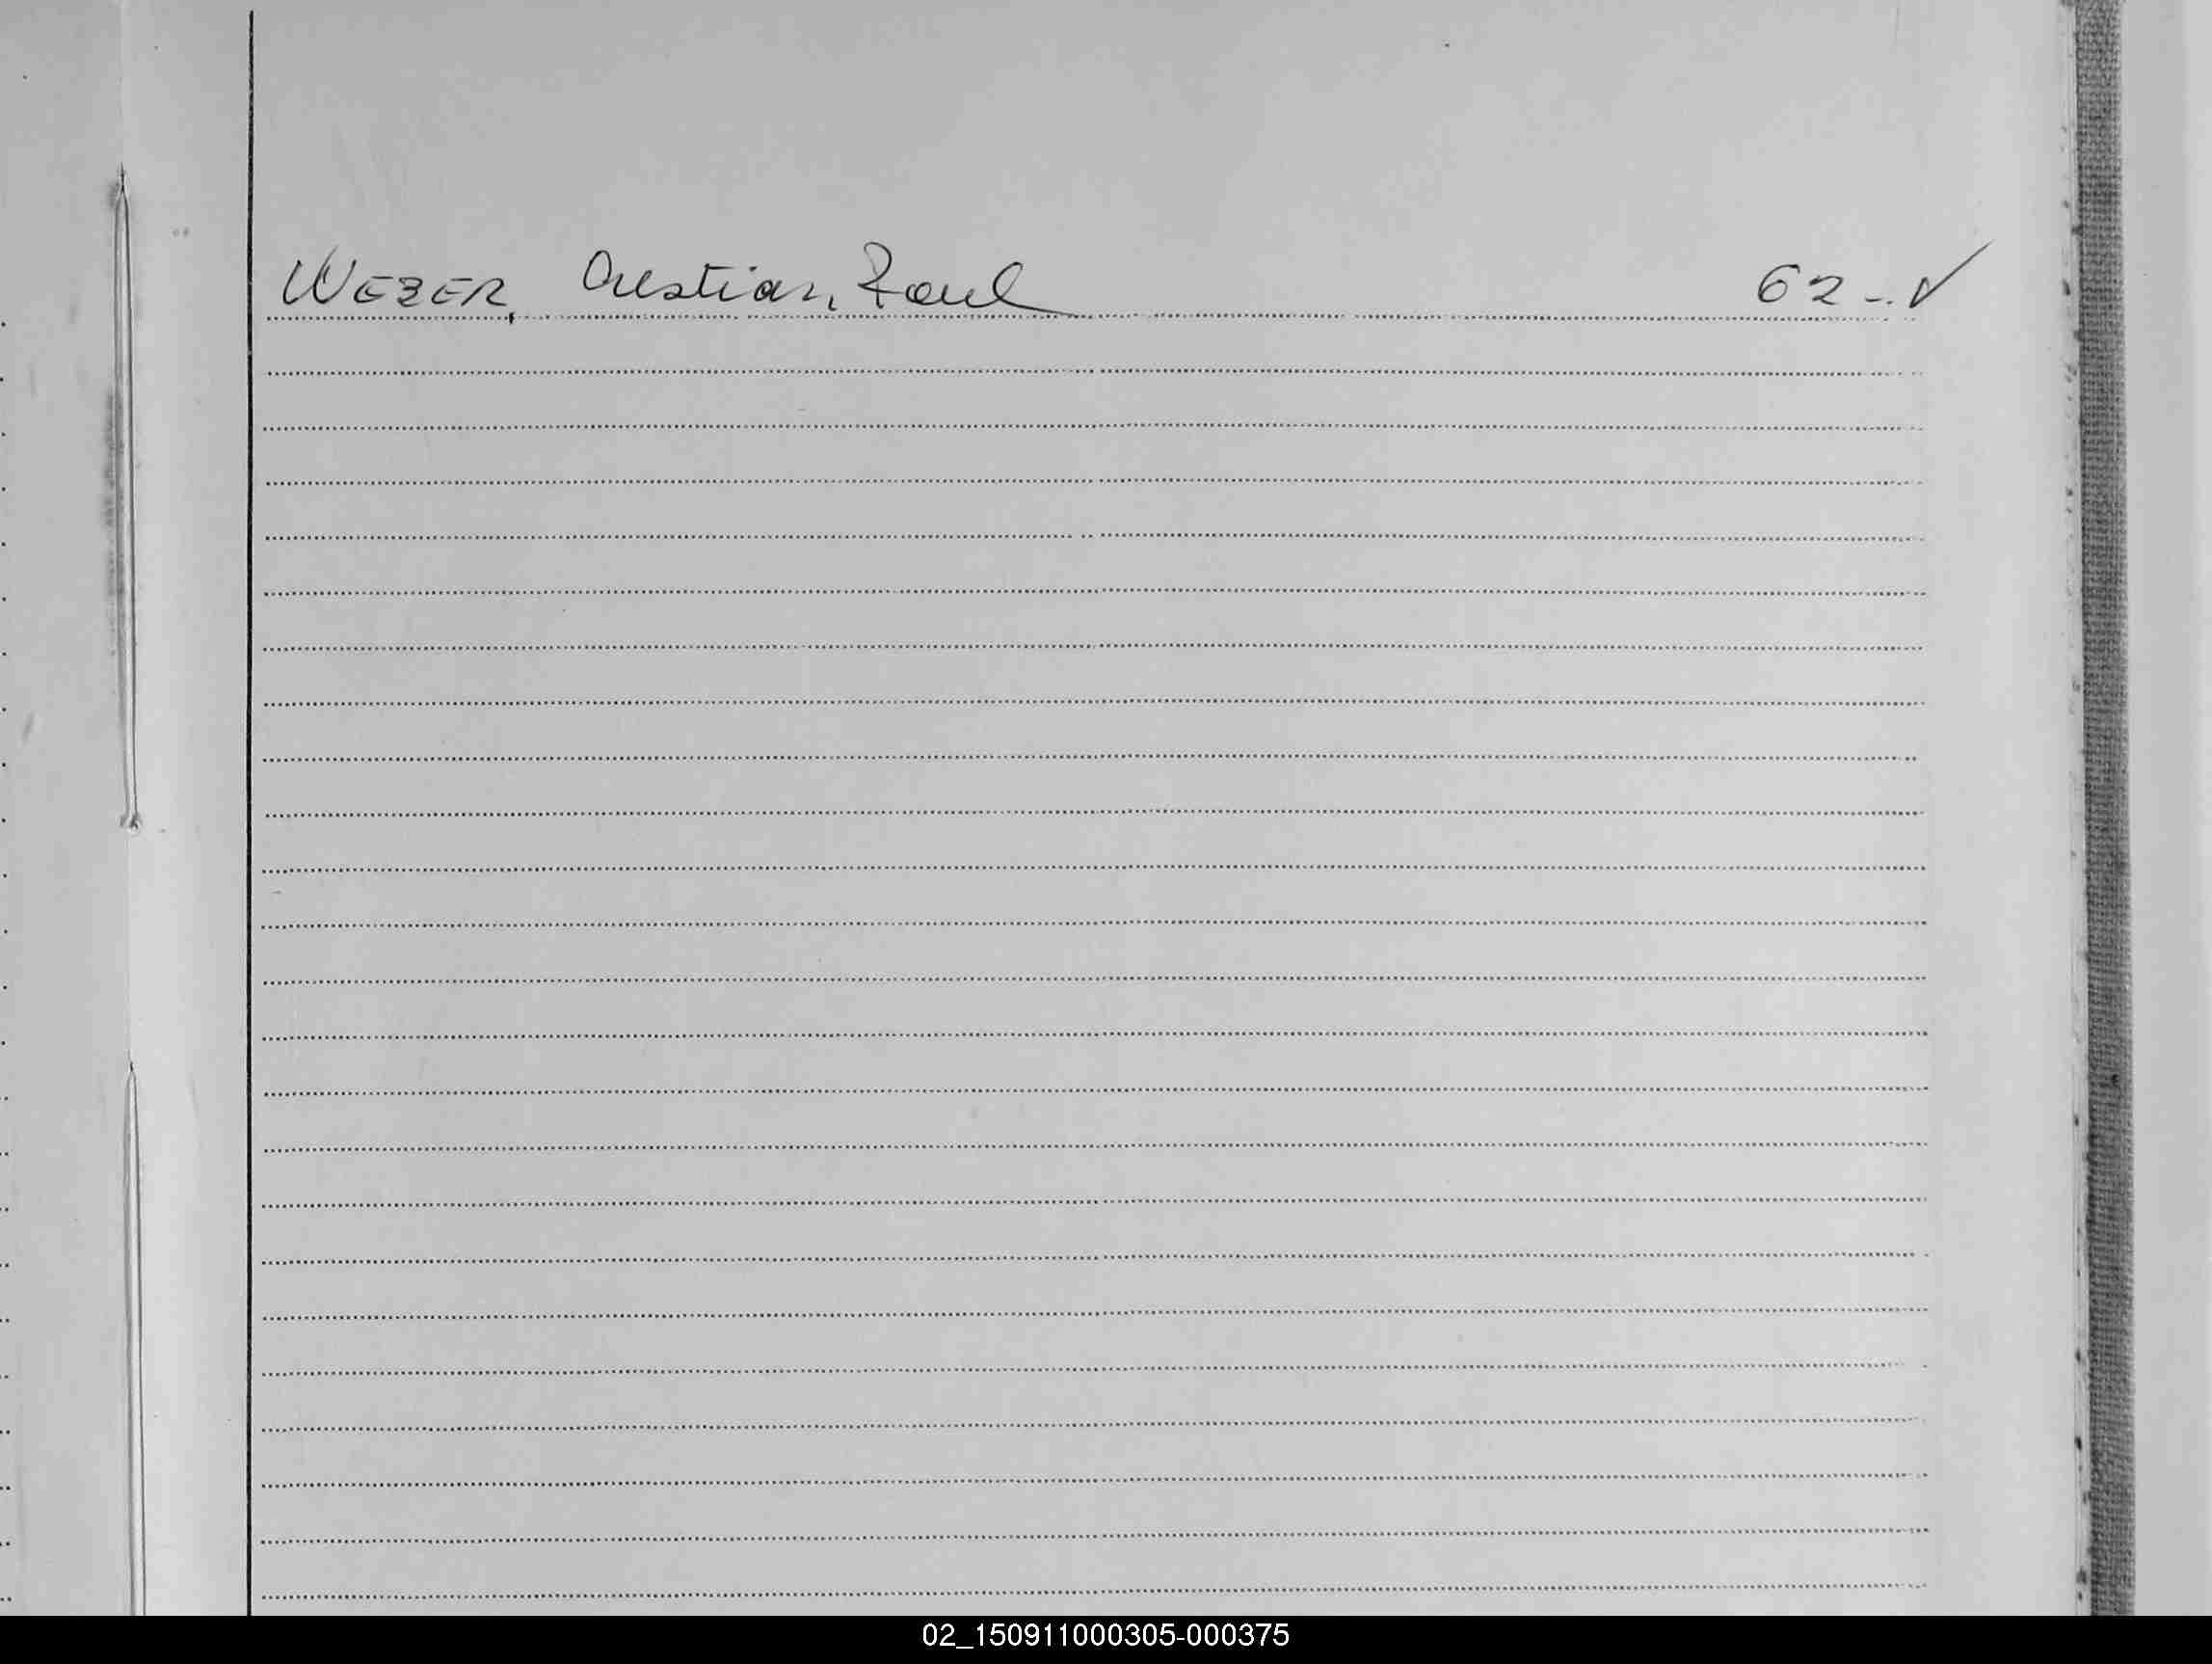 WEBER, Cristian, Raul 62-. ✓
02_150911000305-000375